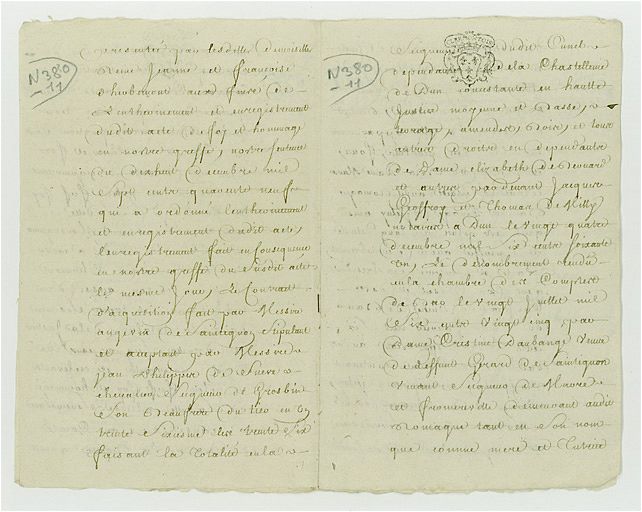 N 380
11
presenté par lesdittes demoiselle
Reine Jeanne et françoise
aux fins de
L'entherinement et enregistrement
dudit acte de foy et hommage
en nostre greffe, nostre sentence
du dixhuit decembre mil
Sept cents quarente neuf
qui a ordonné lentherinement
et enregistrement dudit acte,
lenregistrement fait en consequence
en nostre greffe du susdit acte
le mesme jour, Le Contrat
d'acquisition fait par Messire
de stipulant
et acceptant par Messire
jean Philippe de
chevalier Seigneur de Grosbin
Son Beaufrere du tier en
trente Sixieme les trente Six
faisant la totalité en la
N 380
11
Seigneurie dudit Cunel
dependante de la Chastellenie
de Dun consistante en haulte
justice moyenne et basse,
terrage, amendes, bois, et tous
autres droits en dependants
de Dame elizabeth de
et autres pardevant Jacques
Geoffroy et Thomas de Milly
notaires a Dun le vingt quatre
decembre mil Six cents soixante
un, Le denombrement rendu
en la chambre des Comptes
de Bar le vingt juillet mil
Six cents vingt cinq par
Dame Cristine Daubange veuve
de deffunt Girard de
vivant Seigneur de
et fromereville demeurant audit
Romagne tant en son nom
que comme mere et tutrice